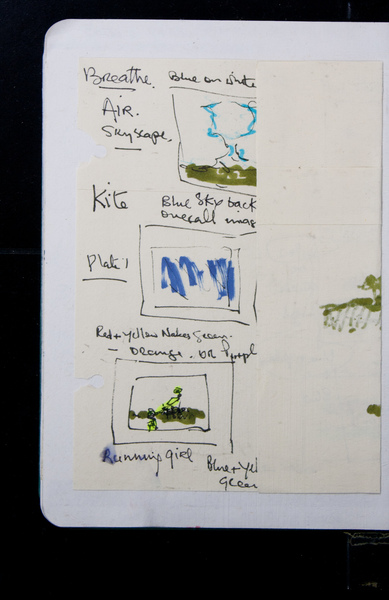 Breathe. Blue on white
AIR.
Skyscape.
Kite Blue Sky back
overall imag
Plate 1
Red + Yellow Makes Green.
— Orange. OR Purpl
Running girl Blue + Yel
green